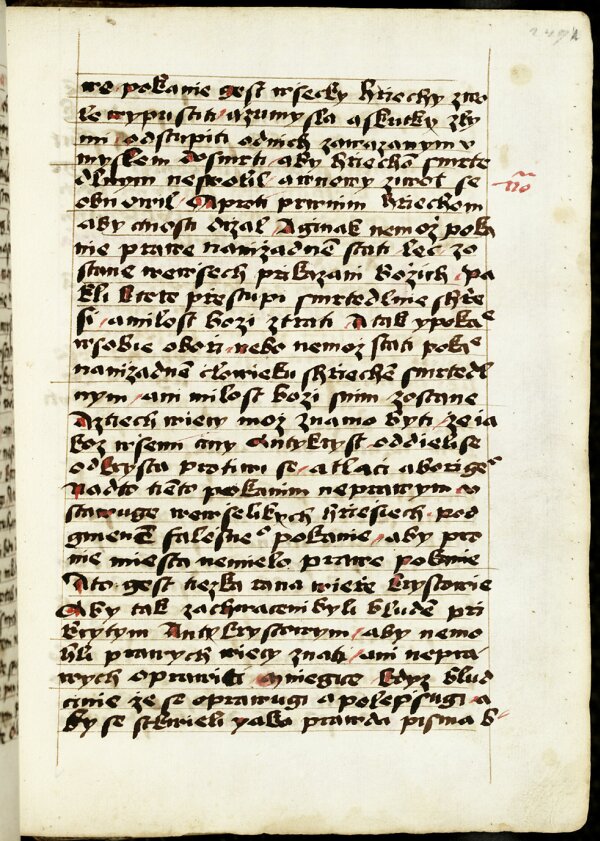 we pokanie gest wsecky hriechy zwo
le wypustiti azumysla askutky zly
mi odstupiti odnich zawazanym v
myslem dosmrti aby hriechom smrte
dlnym neswolil awnowy ziwot se
obnowil Aproti prwnim hriechom
aby cnosti drzal Aginak nemoz poka
nie prawe nanizadnem stati lec zo
stane wewsech prikazani bozich pa
kli ktere prestupi smrtedlnie shre
si amilost bozi ztrati Atak ypokae
wsobie obori nebo nemoz stati poka
nanizadnem clowieku shriechem smrtedl
nym ani milost bozi snim zostane
Aztiech wiecy moz znamo byti zeia
koz wsemi ciny Antykryst oddielise
odkrysta protiwi se atlaci aborige
nadto tiemto pokanim neprawym v
stawuge wewselikych hriesiech pod
gmenem falesne pokanie aby pro
nie miesta nemielo prawe pokanie
Ato gest tiezka rana wiere krystowie
Aby tak zachwaceni byli bludem pri
krytym Antykrystowym aby nemo
hli prawych wiecy znati ani nepra
wych oprawiti aniegice kdyz blud
cinie ze se oprawugi apolepsugi a
by se stkwieli yako prawda pisma b